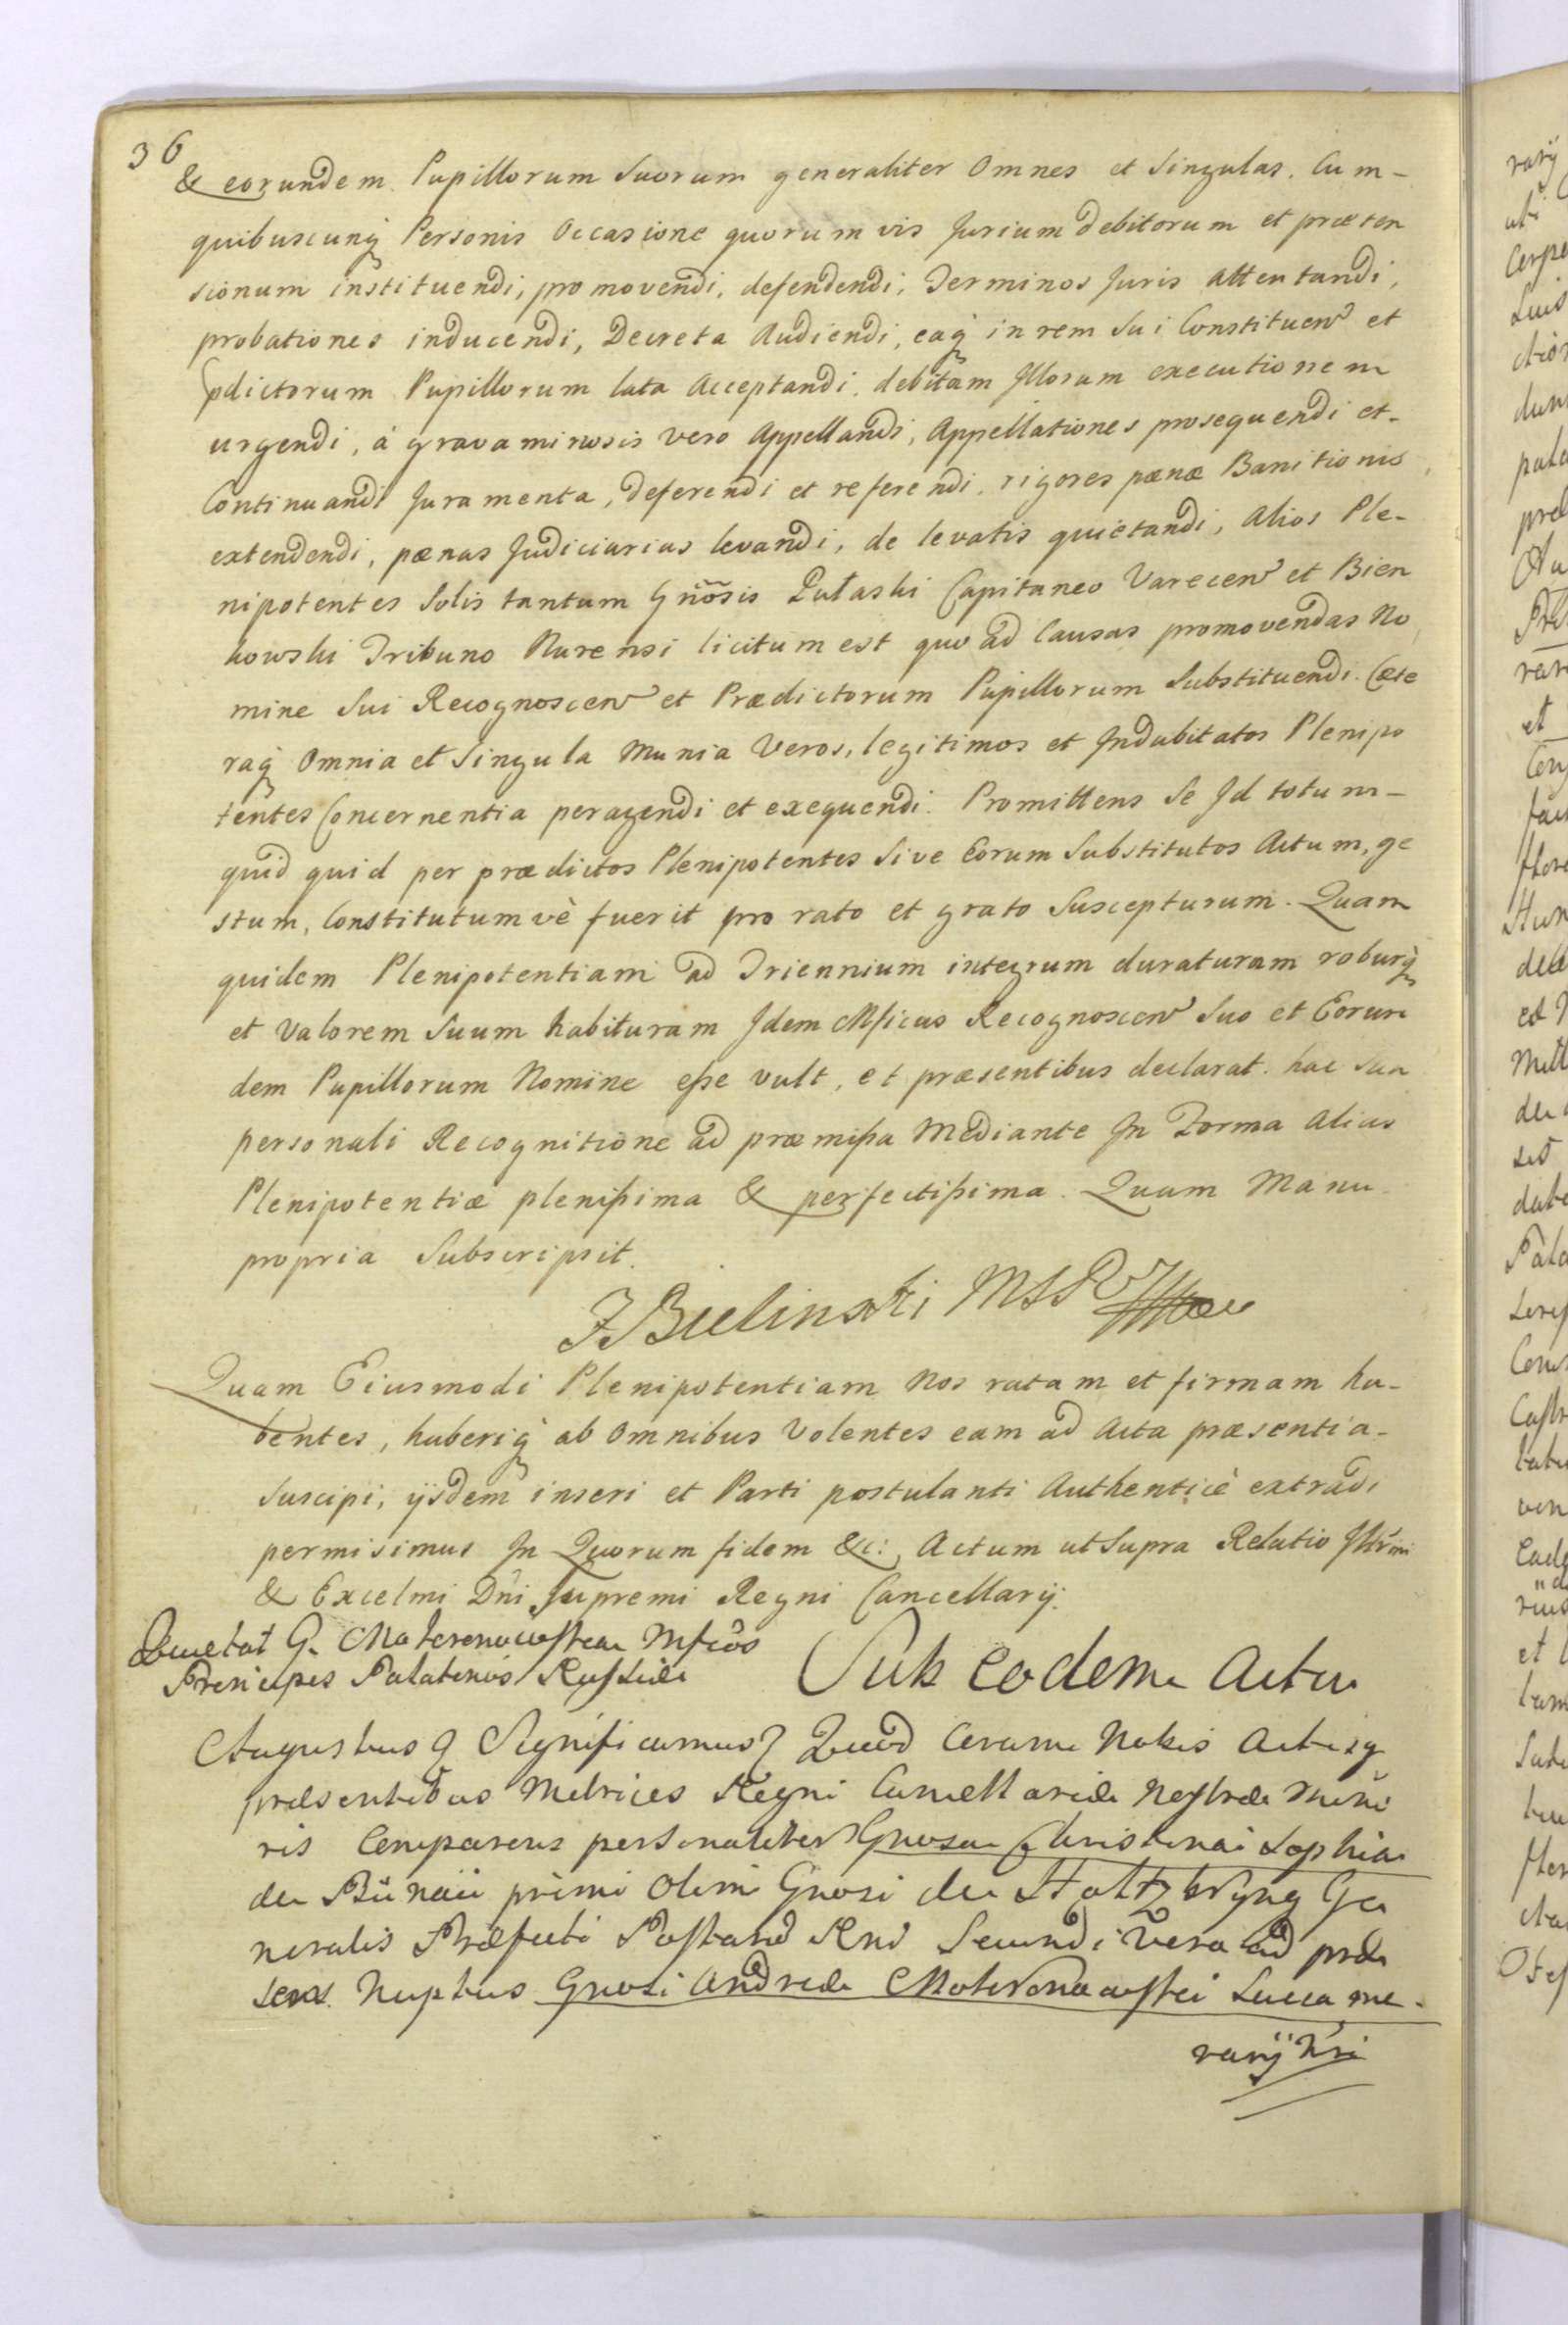 36
& eorundem Pupillorum Suorum generaliter Omnes et Singulas. Cum-
quibuscunq̃ Personis Occasione quorumvis Jurium debitorum et præten
sionum instituendi, promovendi, defendendi, Terminos Juris Attentandi,
probationes inducendi, Decreta Audiendi, eaq̃ in rem Sui Constituen et
pdictorum Pupillorum lata Acceptandi. debitam Illorum executionem
urgendi, à gravaminosis vero Appellandi, Appellationes prosequendi et-
Continuandi Juramenta, deferendi et referendi. rigores pænæ Banitionis
extendendi, pænas Judiciarias levandi, de levatis quietandi, Alios Ple-
nipotentes Solis tantum Gnosis Pułaski Capitaneo Varecen et Bien
kowski Tribuno Nurensi licitum est quo ad Causas promovendas No
mine Sui Recognoscen et Prædictorum Pupillorum Substituendi. Cæte
raq̃ Omnia et Singula Munia Veros, legitimos et Indubitatos Plenipo
tentes Concernentia peragendi et exequendi. Promittens Se Id totum-
quid quid per prædictos Plenipotentes Sive Eorum Substitutos Actum, ge
stum, Constitutumvè fuerit pro rato et grato Suscepturum. Quam
quidem Plenipotentiam ad Triennium integrum duraturam roburq̃
et Valorem Suum habituram Idem Mficus Recognoscen Suo et Eorun
dem Pupillorum Nomine eſse vult, et præsentibus declarat. hac Sua
personali Recognitione ad præmiſsa Mediante In Forma Alias
Plenipotentiæ pleniſsima & perfectiſsima. Quam Manu
propria Subscripsit.
F Bielinski MSR
Quam Eiusmodi Plenipotentiam Nos ratam et firmam ha-
bentes, haberiq̃ ab Omnibus Volentes eam ad Acta præsentia-
Suscipi, ijsdem inseri et Parti postulanti Authenticè extradi
permisimus In Quorum fidem &c: Actum ut Supra Relatio Illrmi
& Excelmi Dni Supremi Regni Cancellarij.
Quietat G. Maternowſka Mficos
Principes Palatinos Ruſsiæ
Sub eodem Actu
Augustus Significamus Quod Coram Nobis Actisq
præsentibus Metrices Regni Cancellariæ Noſtræ Mino
ris Comparens personaliter Gnosa Christina Sophia
de Bünau primi olim Gnosi de Holtzbryng Ge
neralis Præfecti Poſtarū Rni Secundi Vero ad præ
sens Nuptus Gnosi Andreæ Maternowſki Succame-
rarij Nri